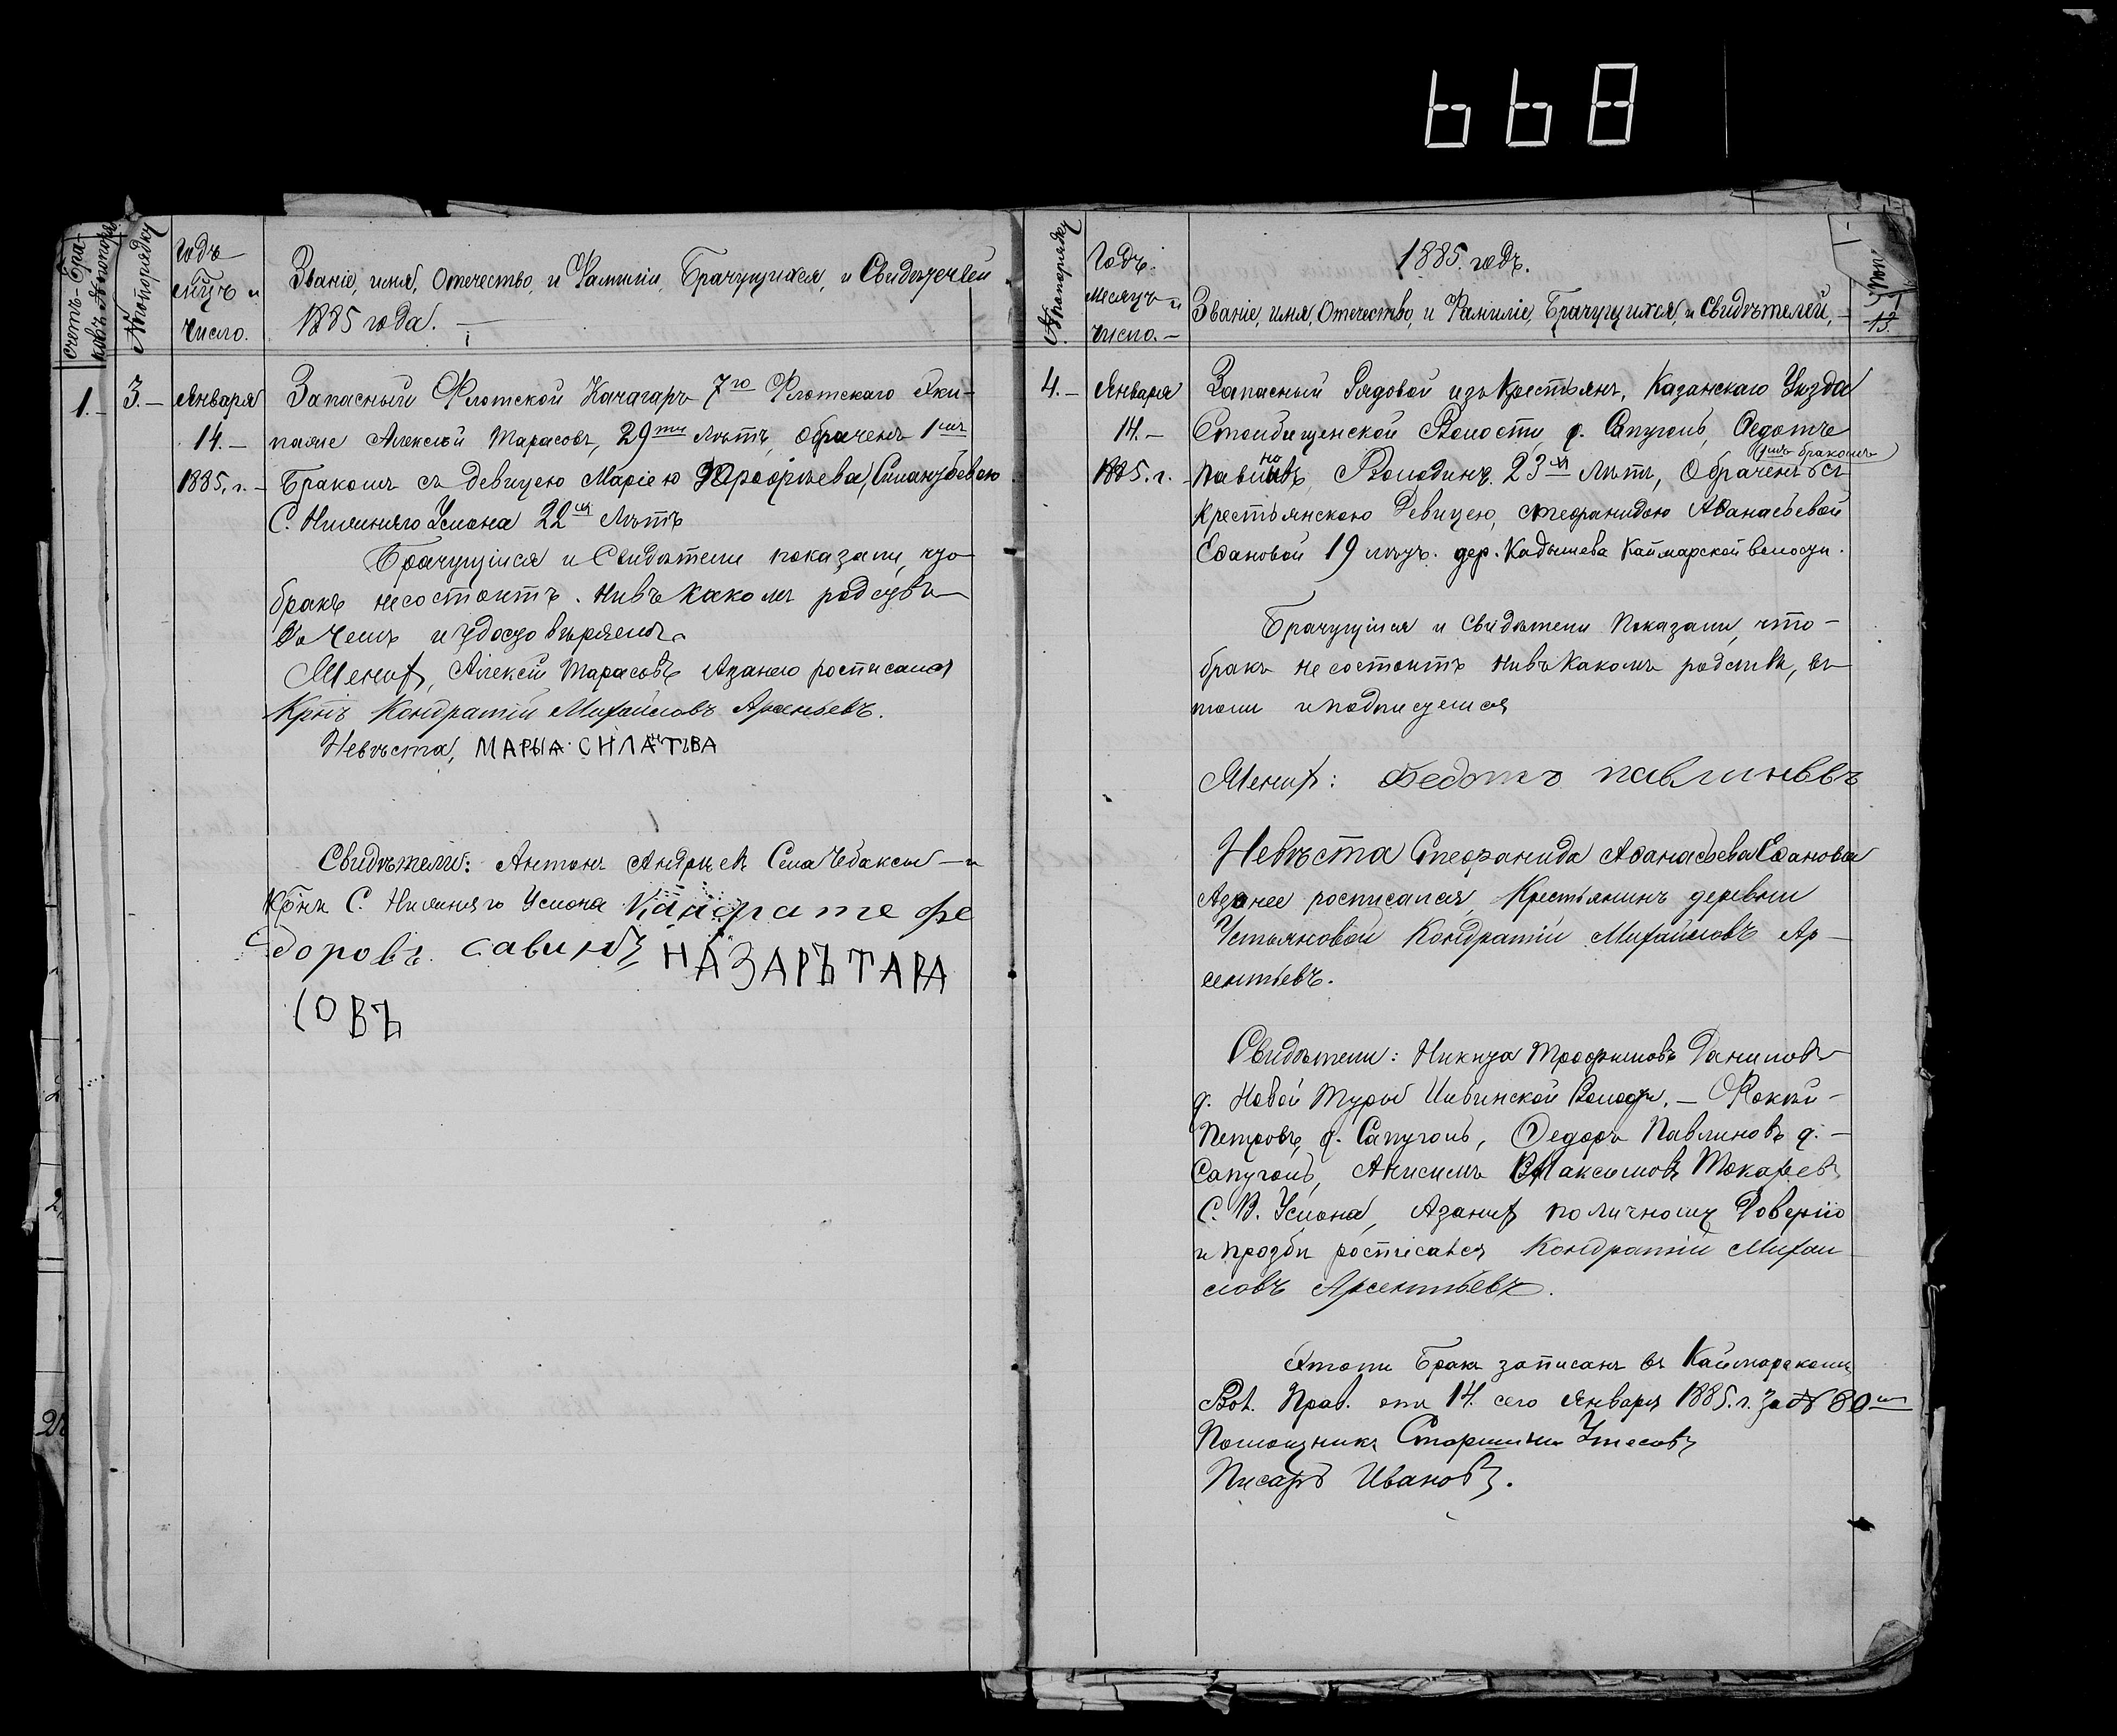 668
счетъ Бра-
ковъ
№ попорядку
Годъ
мѣцъ и
Число.
Званіе, имя, Отечество, и Фамиліи, Брачущихся, и Свидѣтелей
1885 года. —
1. –
3. –
Января
14. –
1885. г. –
Запасный Флотской Качагаръ 7го Флотскаго Эки-
паже Алексѣй Тарасовъ, 29ти лѣтъ, обраченъ 1мъ
Бракомъ съ девицею Маріею
С. Нижняго Услона 22хъ лѣтъ
Брачущійся и Свидѣтели показали, что
бракъ несостоитъ. Нивъ какомъ родств
Во Чемъ и удостовѣряемъ
Женихъ, Алексѣй Тарасовъ Азанего росписался
Крнъ Кондратій Михайловъ Арсеньевъ.
Невѣста, МАРЫА СИЛАНТЬВА
Свидѣтели: Антонъ Андрѣевъ Села Чебаксы – и
С. Нижняго Услона Канфрате фе
доровъ. савинъ НАЗАРЪ ТАРА
СОВЪ
№ попорядку
Годъ
Месяцъ и
число. –
1885. годъ.
Званіе, имя, Отечество, и Фамиліе, Брачущихся, и Свидѣтелей, –
13.
4. –
Января
14. –
1885. г. –
Запасный Рядовой изъ Крестьянъ, Казанскаго Уѣзда
Столбищенской Волости, д. Сапуголь, Ѳедотъ
1мъ бракомъ
Павлиновъ, Володинъ. 23хъ лѣтъ, Обраченъ съ
крестьянскою Девицею, Стефанидою Аѳанасьевой
Еѳановой 19 лѣтъ. дер. Кадышева Каймарской волости.
Брачущійся и Свидѣтели Показали, что –
бракъ не состоитъ Нивъ Какомъ родстве, въ
томъ и подписуемся
Женихъ: Федотъ павлиновъ
Невѣста Стефанида Аѳанасьева Еѳанова
Азанее росписался Крестьянинъ деревни
Устьяновой Кондратій Михайловъ Ар –
сентьевъ.
Свидѣтели: Никита Трофимовъ Даниловъ
д. Новой Туры Ильинской Волости. – Фокій –
Петровъ, д. Сапуголь, Ѳедоръ Павлиновъ д. –
Сапуголь, Анисимъ Максимовъ Токаревъ
С. В. Услона, Азанихъ поличному Доверію
и прозби росписался Кондратій Михаи
ловъ Арсентьевъ.
Этотъ Бракъ записанъ въ Каймарскомъ
Вол. Прав. отъ 14. сего Января 1885. г. за № 80мъ
Помощникъ Старшины Утесовъ
Писарь Ивановъ.